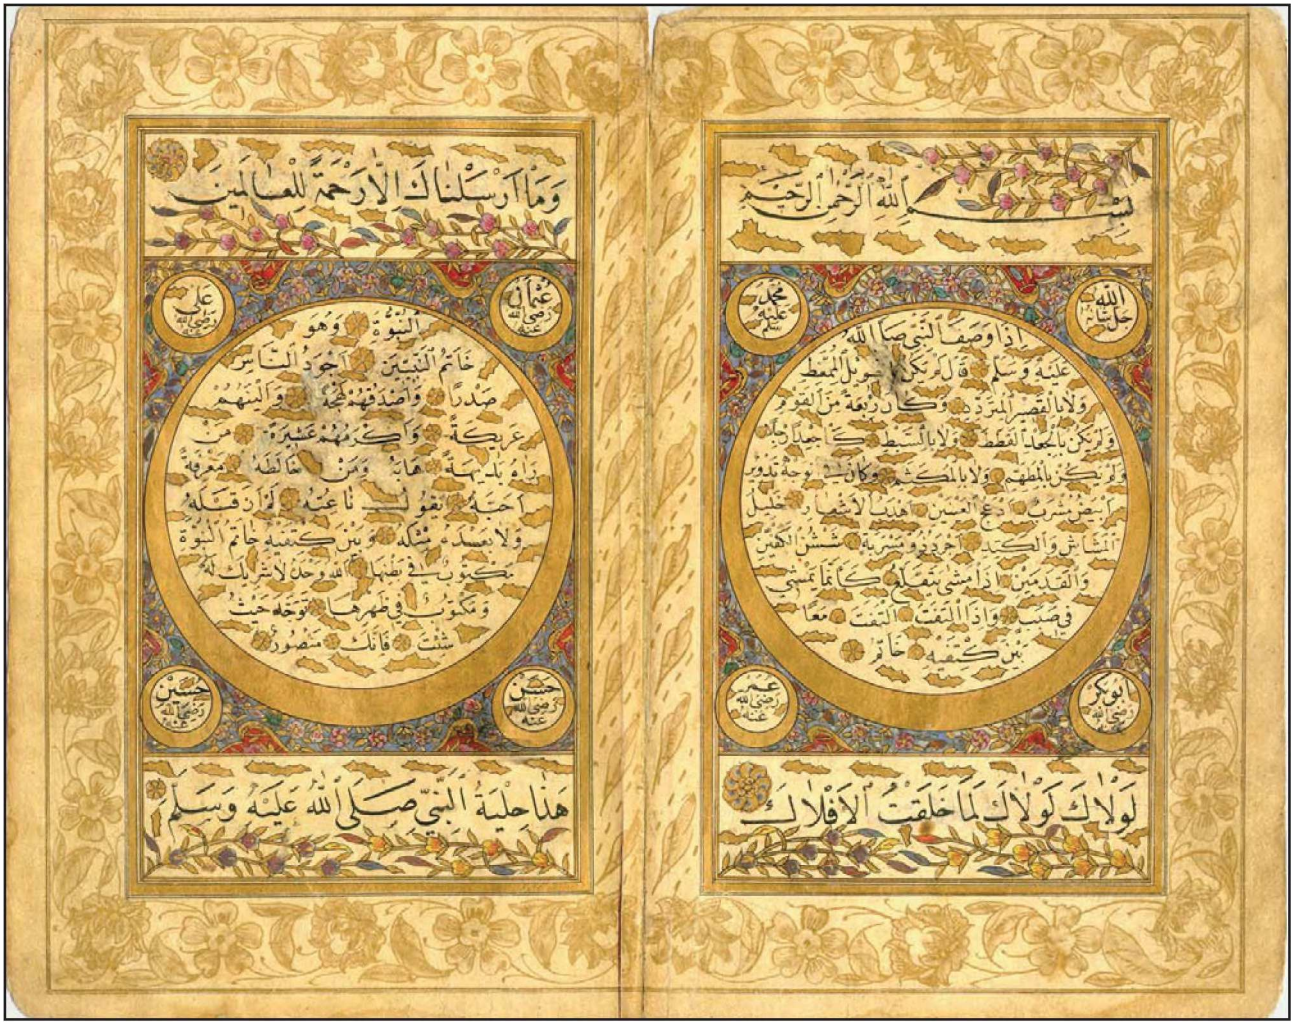 بِسْمِ اللّٰهِ الرَّحْمٰنِ الرَّحِيمِ
اللّٰه جل شانه
محمد عليه
اذا وصف النبى صلى الله
عليه وسلم قال لم يكن بالطويل الممغط
ولا بالقصير المتردد وكان ربعة من القوم
ولم يكن بالجعد القطط ولا بالسبط كان جعدا
ولم يكن بالمطهم ولا بالمكلثم وكان بوجهه تدوير
ابيض مشرب ادعج العينين اهدب الاشفار جليل
المشاش والكتد اجرد ذو مسربة شثن الكفين
والقدمين اذا مشى يتقلع كانما يمشى
فى صبب واذا التفت التفت معا
بين كتفيه خاتم
ابوبكر رضى الله
عمر رضى الله عنه
لَوْلَاكَ لَوْلَاكَ لَمَا خَلَقْتُ الْاَفْلَاكَ
وَمَا اَرْسَلْنَاكَ اِلَّا رَحْمَةً لِلْعَالَمِينَ
عثمان رضى الله عنه
على رضى الله عنه
النبوة وهو
خاتم النبيين اجود الناس
صدرا واصدقهم لهجة والينهم
عريكة واكرمهم عشيرة من
راه بديهة هابه ومن خالطه معرفة
احبه يقول ناعته لم ار قبله
ولا بعده مثله وبين كتفيه خاتم النبوة
مكتوب فى بطنها الله وحده لا شريك له
ومكتوب فى ظهرها توجه حيث
شئت فانك منصور
حسن رضى الله عنه
حسين رضى الله عنه
هٰذَا حِلْيَةُ النَّبِيِّ صَلَّى اللّٰهُ عَلَيْهِ وَسَلَّمَ